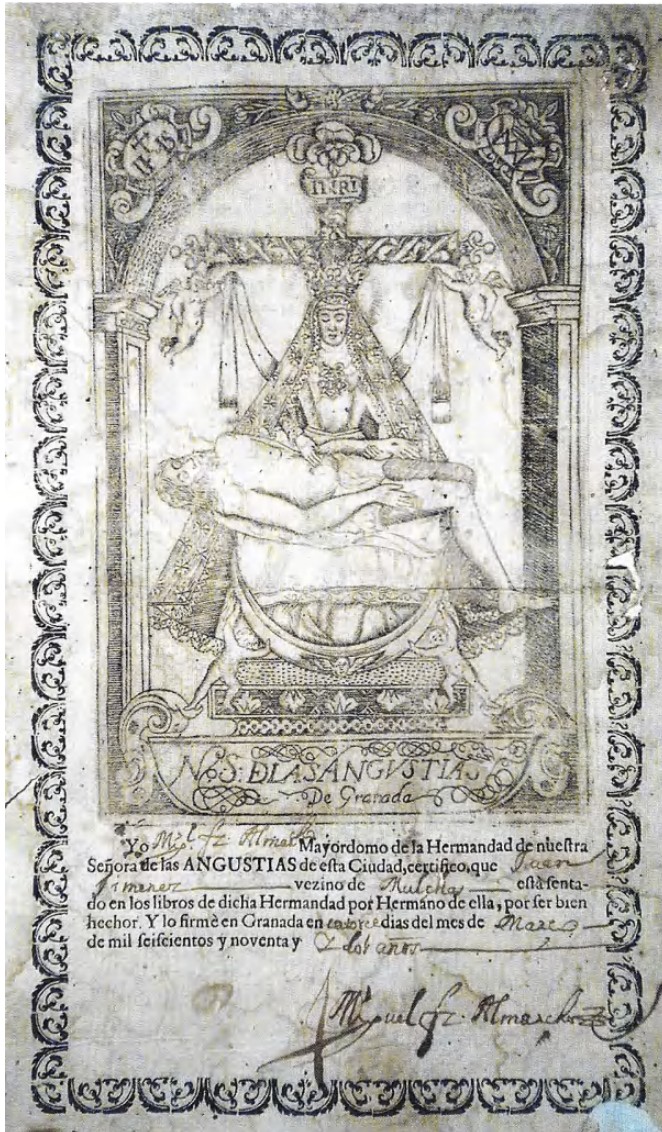 INRI
Nª S: D LAS ANGVSTIAS
De Granada
Yo Migl. fz. Almarcho Mayordomo de la Hermandad de nuestra
Señora de las ANGUSTIAS de esta Ciudad, certifico, que Juan
Ximenez vezino de Mulchas està senta-
do en los libros de dicha Hermandad por Hermano de ella, por ser bien
hechor. Y lo firmè en Granada en catorce dias del mes de Março
de mil seiscientos y noventa y dos años
Miguel fz. Almarcho